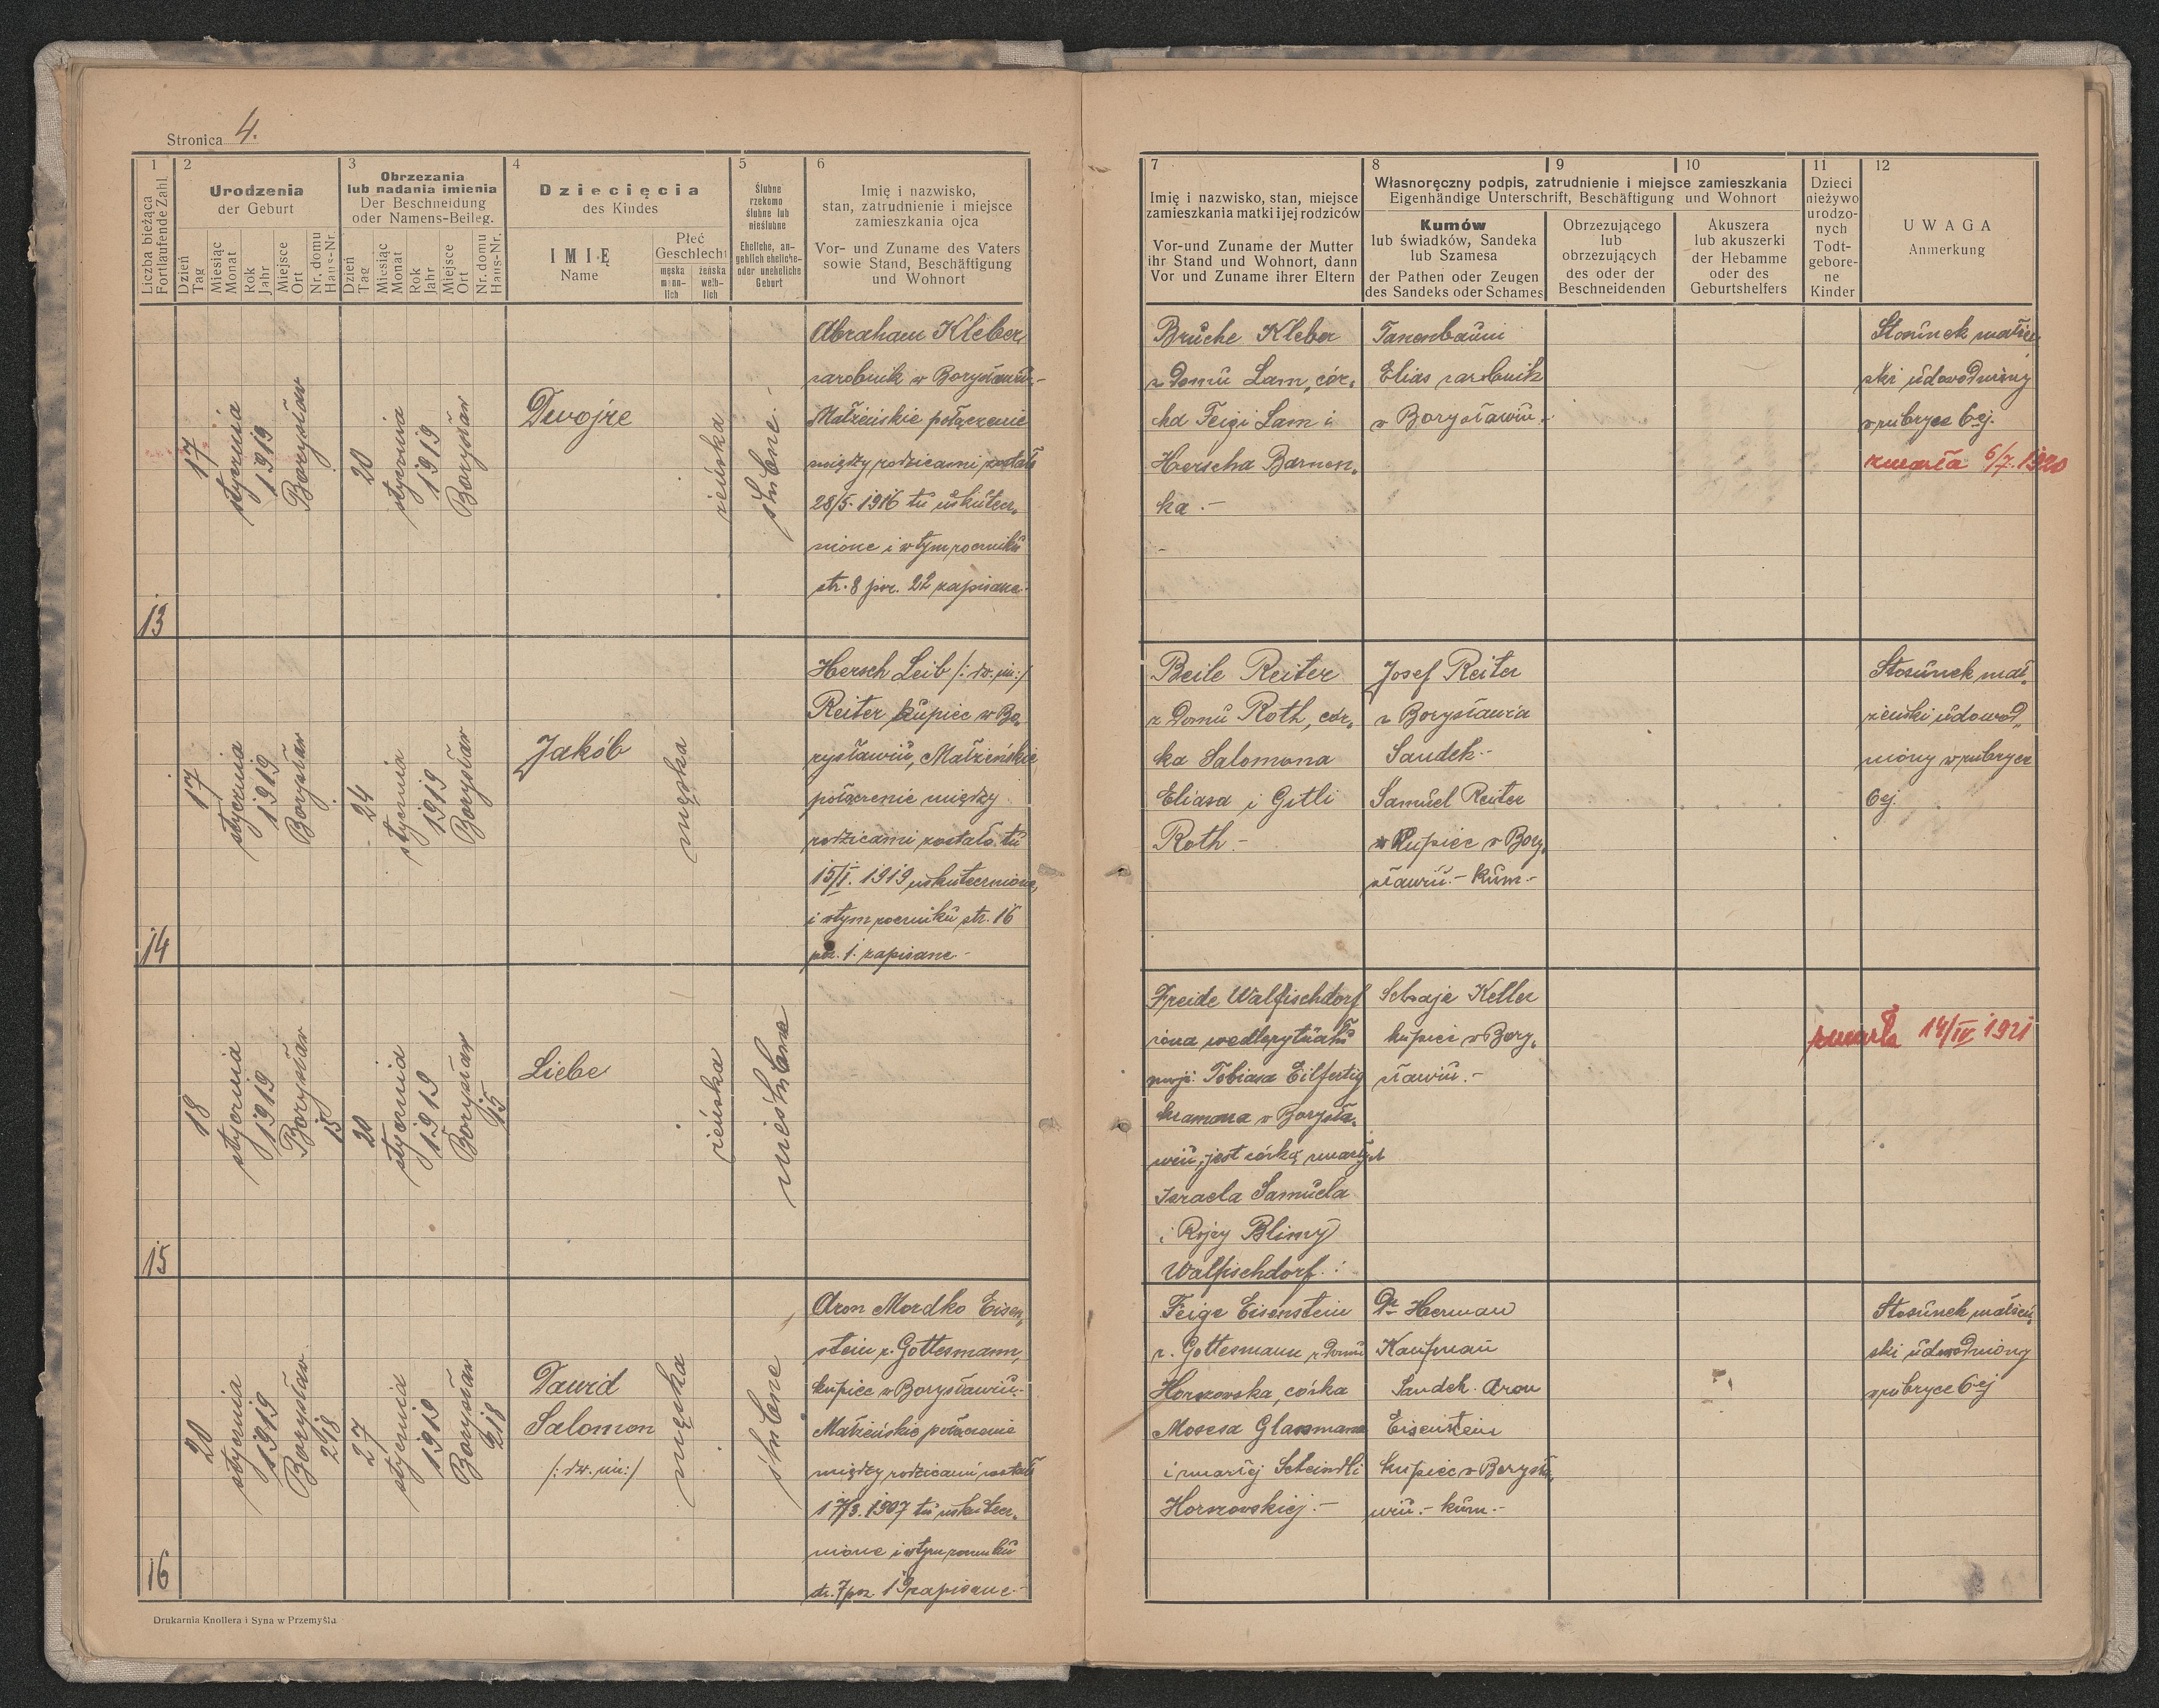 Stronica 4.
1
Liczba bieżąca
Fortlaufende Zahl.
2
Urodzenia
der Geburt
Dzień
Tag
Miesiąc
Monat
Rok
Jahr
Miejsce
Ort
Nr. domu
Haus-Nr.
3
Obrzezania
lub nadania imienia
Der Beschneidung
oder Namens-Beileg.
Dzień
Tag
Miesiąc
Monat
Rok
Jahr
Miejsce
Ort
Nr. domu
Haus-Nr.
4
Dziecięcia
des Kindes
IMIĘ
Name
Płeć
Geschlecht
męska
männ-
lich
żeńska
weib-
lich
5
Ślubne
rzekomo
ślubne lub
nieślubne
Eheliche, an-
geblich eheliche-
oder uneheliche
Geburt
6
Imię i nazwisko,
stan, zatrudnienie i miejsce
zamieszkania ojca
Vor- und Zuname des Vaters
sowie Stand, Beschäftigung
und Wohnort
13
17
stycznia
1919
Borysław
20
stycznia
1919
Borysław
Dwojre
żeńska
ślubne.-
Abraham Kleber
zarobnik w Borysławiu-
Małżeńskie połączenie
między rodzicami zostało
28/5. 1916 tu uskutecz„
nione i w tym roczniku
str. 8 poz. 22 zapisane.
14
17
stycznia
1919
Borysław
24
stycznia
1919
Borysław
Jakób
męska
Hersch Leib /: dw. im:/
Reiter kupiec w Bo„
rysławiu, Małżeńskie
połączenie między
rodzicami zostało tu
15/I. 1919 uskutecznione,
i w tym roczniku str. 16
poz. 1. zapisane -
15
18
stycznia
1919
Borysław
15
20
stycznia
1919
Borysław
15
Liebe
żeńska
nieślubna
16
20
stycznia
1919
Borysław
218
27
stycznia
1919
Borysław
218
Dawid
Salomon
/: dw. im:/
męska
ślubne
Aron Mordko Eisen„
stein r. Gottesmann,
kupiec w Borysławiu.
Małżeńskie połączenie
między rodzicami zostało
17/3. 1907 tu uskutecz„
nione i w tym roczniku
str. 7 poz. 19 zapisane.-
Drukarnia Knollera i Syna w Przemyślu
7
Imię i nazwisko, stan, miejsce
zamieszkania matki i jej rodziców
Vor-und Zuname der Mutter
ihr Stand und Wohnort, dann
Vor und Zuname ihrer Eltern
8
9
10
Własnoręczny podpis, zatrudnienie i miejsce zamieszkania
Eigenhändige Unterschrift, Beschäftigung und Wohnort
Kumów
lub świadków, Sandeka
lub Szamesa
der Pathen oder Zeugen
des Sandeks oder Schames
Obrzezującego
lub
obrzezujących
des oder der
Beschneidenden
Akuszera
lub akuszerki
der Hebamme
oder des
Geburtshelfers
11
Dzieci
nieżywo
urodzo-
nych
Todt-
gebore-
ne
Kinder
12
UWAGA
Anmerkung
Bruche Kleber
z domu Lam, cór„
ka Feigi Lam i
Herscha Barnen„
ka.-
Tanenbaum
Elias zarobnik
w Borysławiu.
Stosunek małżeń
ski udowodniony
w rubryce 6ej.
zmarła 6/7. 1920
Beile Reiter
z domu Roth, cór„
ka Salomona
Eliasa i Gitli
Roth.-
Josef Reiter
z Borysławia
Sandek.-
Samuel Reiter
kupiec w Bory„
sławiu.- kum.-
Stosunek mał„
żeński udowod„
niony w rubryce
6ej.
Freide Walfischdorf
żona wedle rytuału
mojż. Tobiasa Eilfertig
kramarza w Borysła„
wiu, jest córką zmarłych
Israela Samuela
i Rojzy Blimy
Walfischdorf.:
Schaje Keller
kupiec w Bory„
sławiu.-
zmarła 14/IV 1921
Feige Eisenstein
r. Gottesmann z domu
Horszowska, córka
Mosesa Glassmanna
i zmarłej Scheindli
Horszowskiej.-
Dr Herman
Kaufman
Sandek. Aron
Eisenstein
kupiec w Borysła„
wiu.- kum.-
Stosunek małżeń„
ski udowodniony
w rubryce 6ej